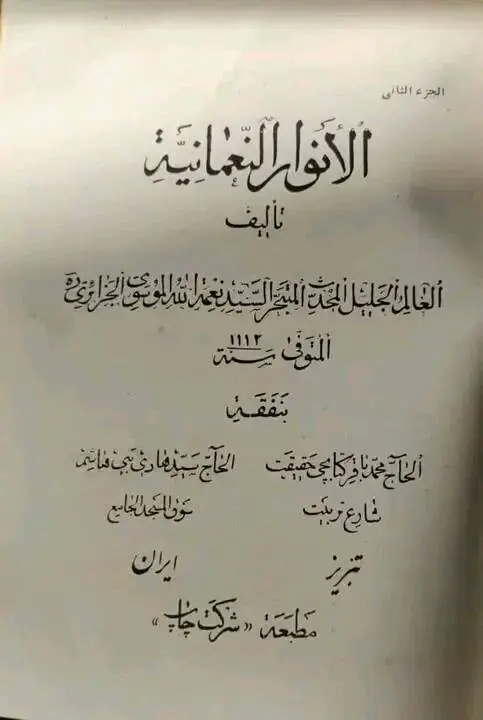 الجزء الثاني
الأنوار النّعمانيّة
تأليف
العالم الجليل المحدث المتبحر السيد نعمة الله الموسوي الجزائري ره
المتوفى سنة ١١١٢
بنفقة
الحاج محمد باقر كتابچي حقيقت الحاج سيد هادي بني هاشم
شارع تربيت سوق المسجد الجامع
تبريز ايران
مطبعة «شركت چاپ»